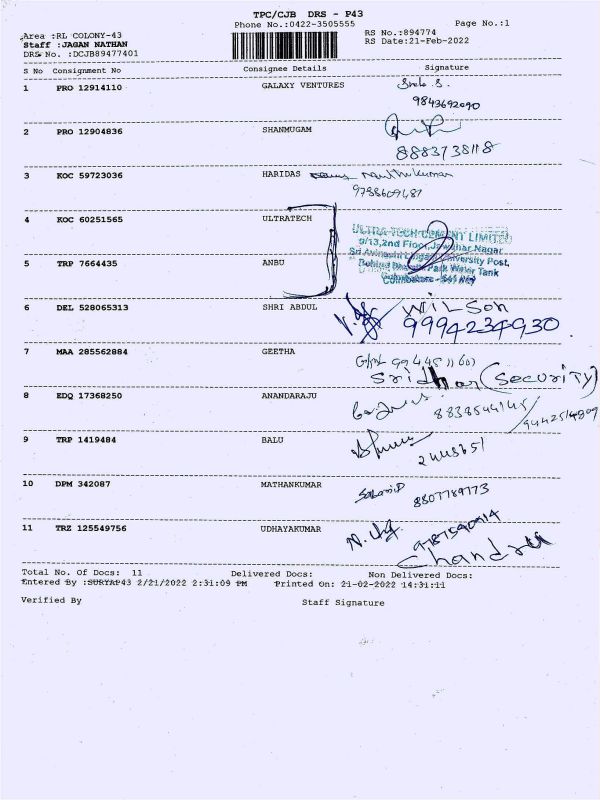 TPC/CJB DRS - P43
Phone No.:0422-3505555
Page No.:1
Area :RL COLONY-43
RS No.:894774
Staff :JAGAN NATHAN
RS Date:21-Feb-2022
DRS No. :DCJB89477401
S No Consignment No Consignee Details Signature
1 PRO 12914110 GALAXY VENTURES
9843692090
2 PRO 12904836 SHANMUGAM
8883738118
3 KOC 59723036 HARIDAS Muthukumar
9788609487
4 KOC 60251565 ULTRATECH
ULTRA TECH CEMENT LIMITED
9/13,2nd Floor,Jawahar Nagar
Sri Avinashi Lingam University Post,
Behind Bharathi Park Water Tank
Coimbatore
5 TRP 7664435 ANBU
6 DEL 528065313 SHRI ABDUL WILSON
9994234930
7 MAA 285562884 GEETHA
Sridhar (Security)
8 EDQ 17368250 ANANDARAJU
8838544145/
9442514809
9 TRP 1419484 BALU
2448651
10 DPM 342087 MATHANKUMAR
8807789773
11 TRZ 125549756 UDHAYAKUMAR
Chandru
Total No. Of Docs: 11 Delivered Docs: Non Delivered Docs:
Entered By :SURYAP43 2/21/2022 2:31:09 PM Printed On: 21-02-2022 14:31:11
Verified By Staff Signature